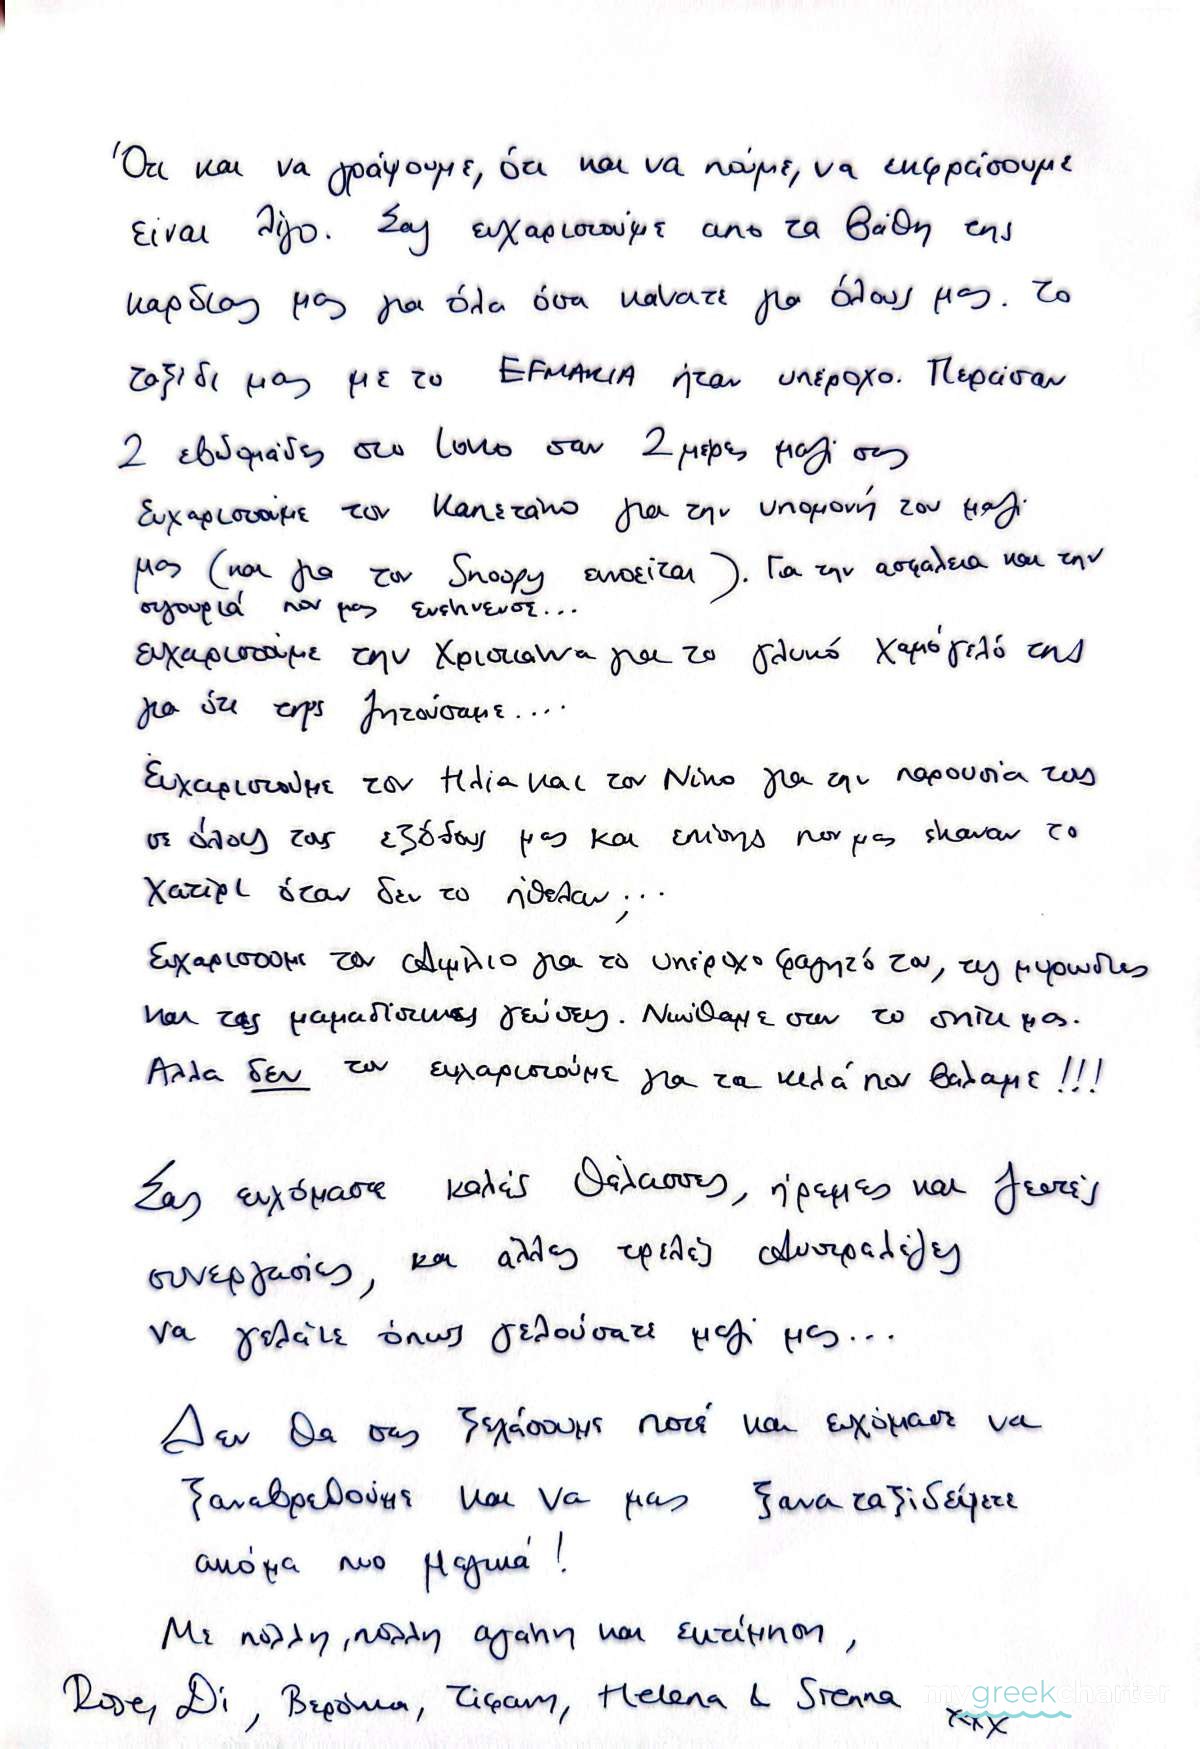 Ότι και να γράψουμε, ότι και να πούμε, να εκφράσουμε
είναι λίγο. Σας ευχαριστούμε απο τα βάθη της
καρδιας μας για όλα όσα κανατε για όλους μας. Το
ταξίδι μας με το EFMARIA ήταν υπέροχο. Περάσαν
2 εβδομάδες στο Ιονιο σαν 2 μέρες μαζί σας
Ευχαριστούμε τον Καπετάνιο για την υπομονή του μαζί
μας (και για τον Snoopy εννοείται). Για την ασφάλεια και την
σιγουριά που μας ενέπνευσε...
ευχαριστούμε την Χριστιαννα για το γλυκό χαμόγελό της
για ότι της ζητούσαμε....
Ευχαριστούμε τον Ηλία και τον Νίκο για την παρουσία τους
σε όλους τους εξόδους μας και επίσης που μας έκαναν το
χατίρι όταν δεν το ήθελαν;...
Ευχαριστουμε τον Αιμίλιο για το υπέροχο φαγητό του, τις μυρωδιες
και τις μαμαδίστικες γεύσεις. Νιώθαμε σαν το σπίτι μας.
Αλλα δεν τον ευχαριστούμε για τα κιλά που βάλαμε!!!
Σας ευχόμαστε καλές θάλασσες, ήρεμες και ζεστές
συνεργασίες, και άλλες τρελές Αυστραλέζες
να γελάτε όπως γελούσατε μαζί μας...
Δεν θα σας ξεχάσουμε ποτέ και ευχόμαστε να
ξαναβρεθούμε και να μας ξαναταξιδέψετε
ακόμα πιο μαγικά!
Με πολλη, πολλη αγάπη και εκτίμηση,
Rose, Di, Βερόνικα, Τίφανη, Helena & Sienna
xxx
mygreekcharter